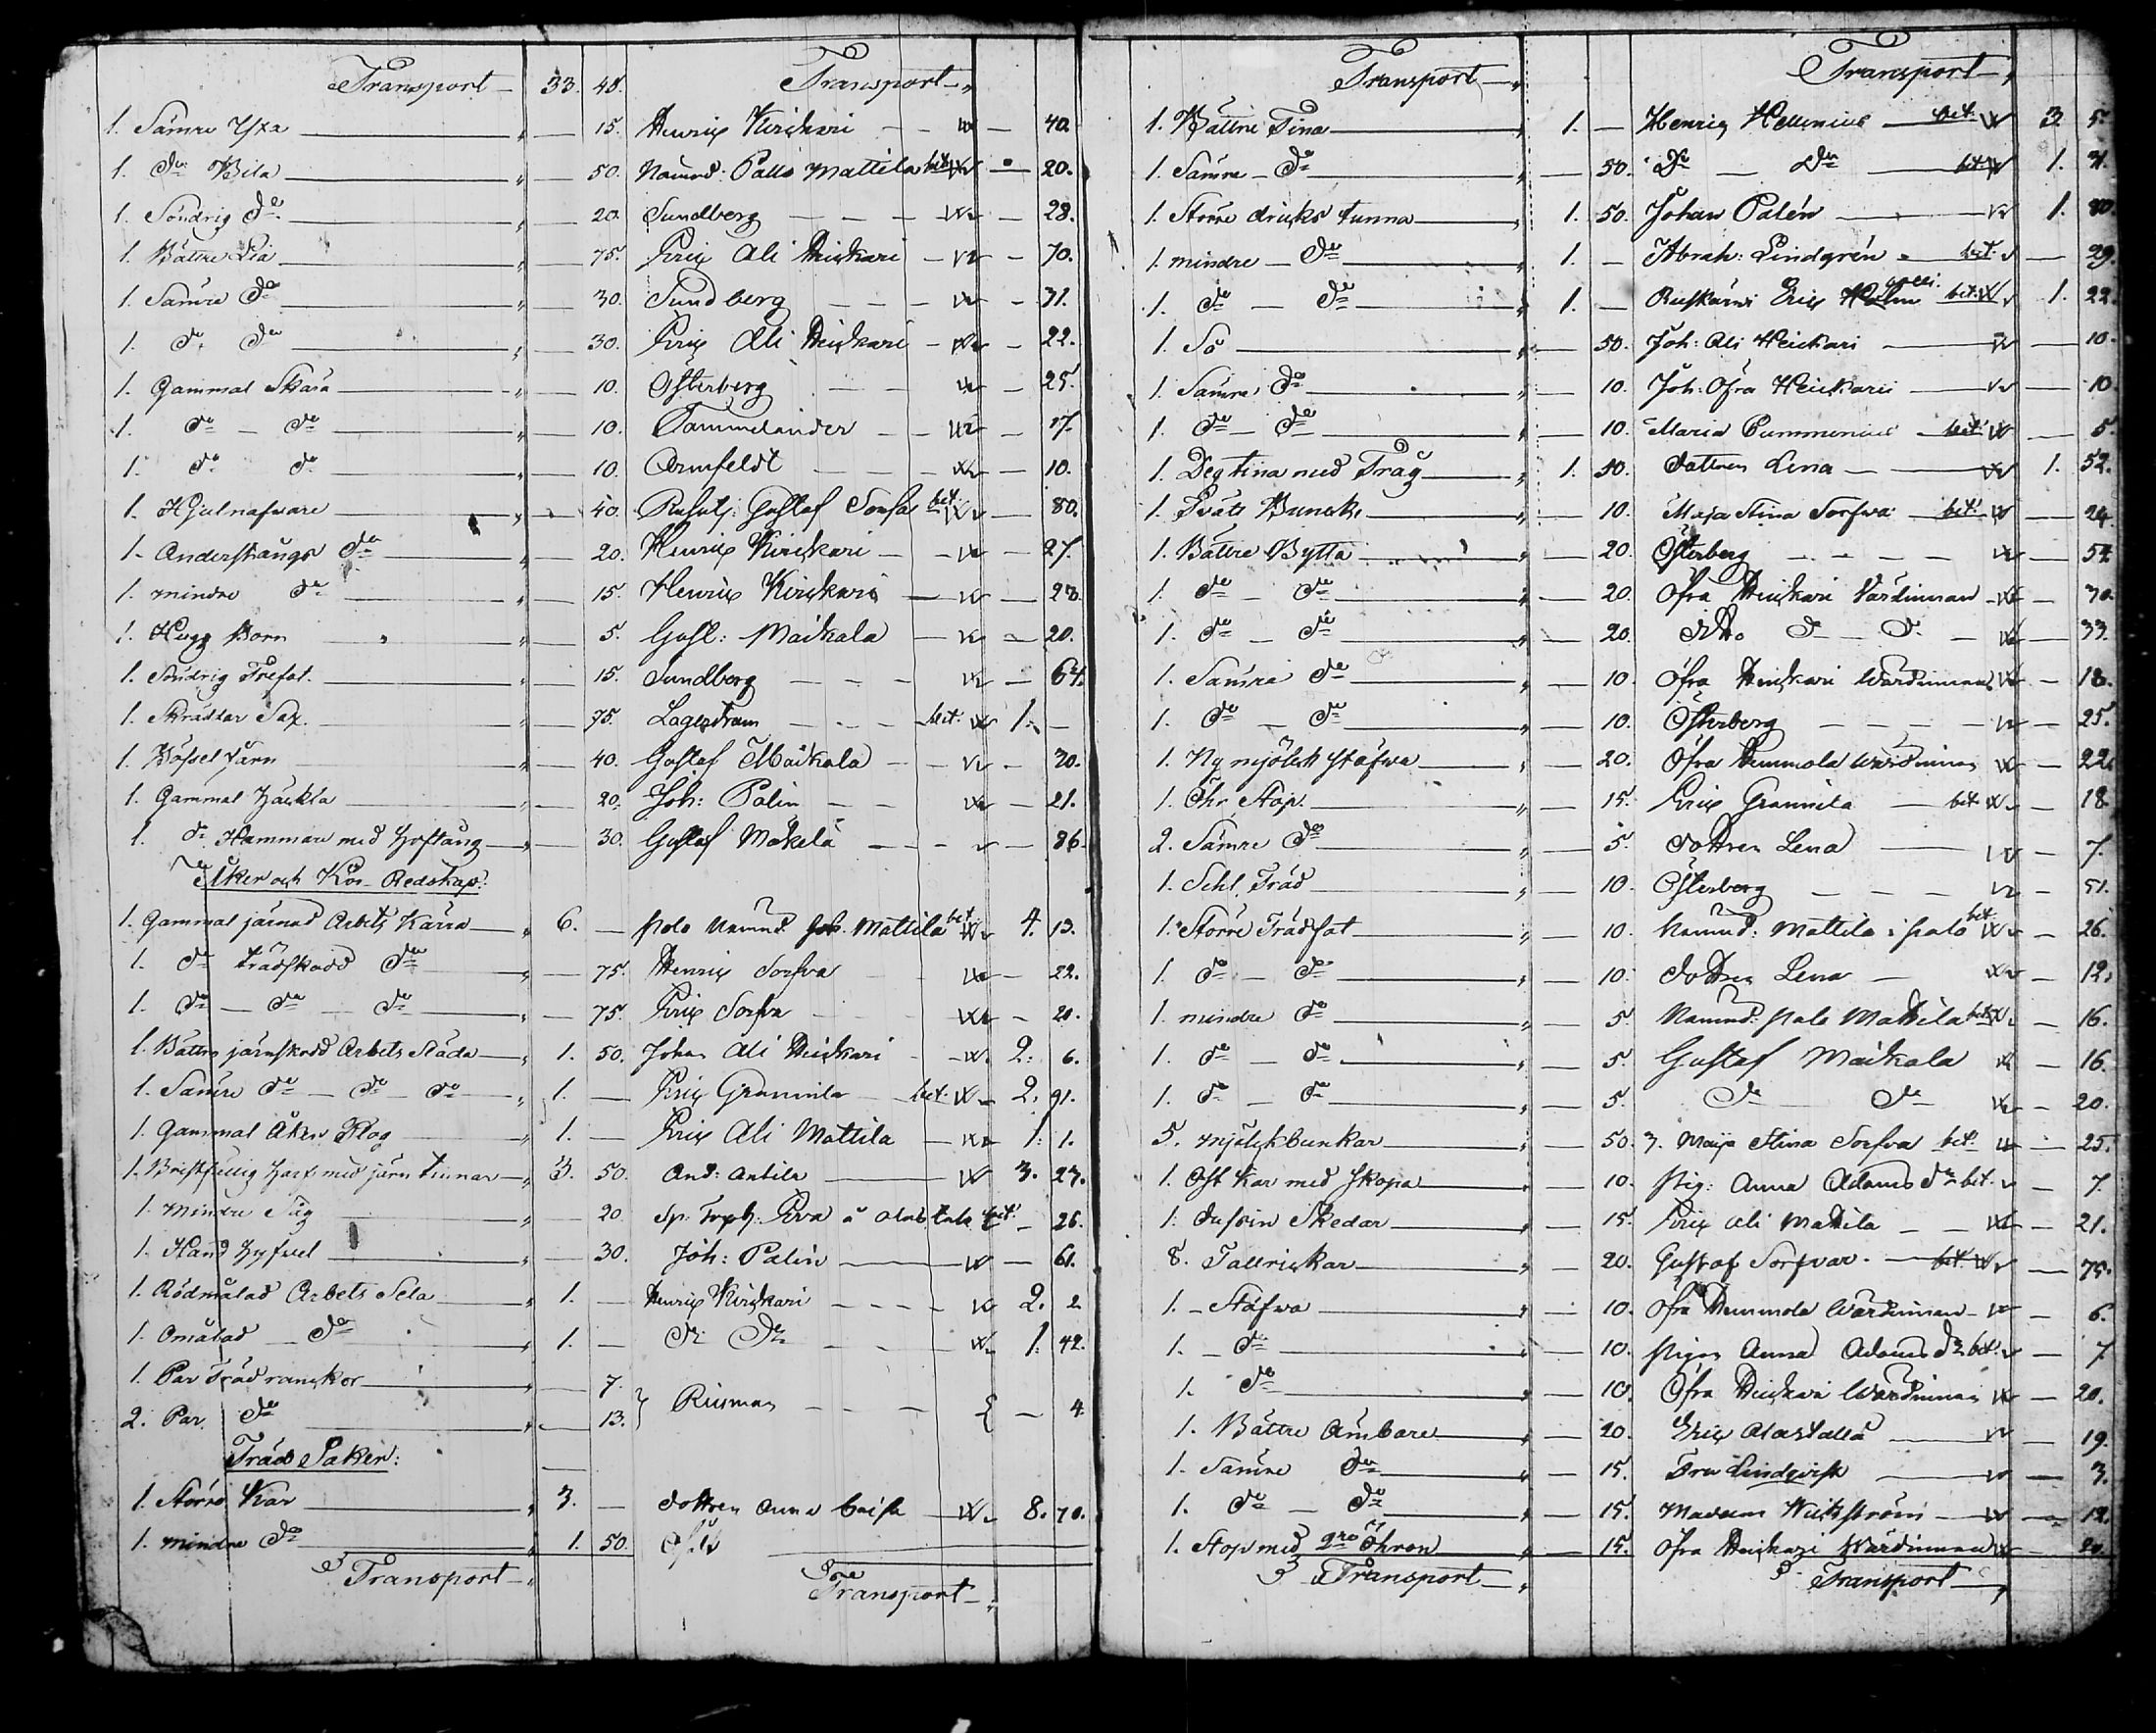 Transport 33. 48. Transport
1. Sämre Yxa 15. Henric Kirckari 40.
1. do Bila 50. Nämnd: Pallo Mattila bet 20.
1. Söndrig do 20. Sundberg 28.
1. Bättre Lia 75. Eric Ali Heickari 70.
1. Sämre do 30. Sundberg 31.
1. do do 30. Eric Ali Heickari 22.
1. Gammal Skära 10. Österberg 25.
1. do do 10. Tammelander 17.
1. do do 10. Armfeldt 10.
1. Hjulnafvare 40. Gustaf Sorfa bet 80.
1. Anderstångs do 20. Henric Kirckari 27.
1. mindre do 15. Henric Kirckari 23.
1. Hugg Born 5. Gust: Maikala 20.
1. Söndrig Trefot 15. Sundberg 64.
1. Skräddar Sax 75. Lagerstram bet: 1.
1. Bössel Järn 40. Gustaf Maikala 30.
1. Gammal Häckla 20. Joh: Palin 21.
1. do Hammare med Hoftång 30. Gustaf Mäkelä 86.
Åker och Kör-Redskap:
1. Gammal järnad Arbets Kärra 6. palo Nämnd. Joh. Mattila bet 4. 13.
1. do trädskodd do 75. Henric Sorfva 22.
1. do do do 75. Eric Sorfva 20.
1. Bättre järnskodd Arbets Släda 1. 50. Johan Ali Heickari 2. 6.
1. Sämre do do do 1. Eric Grannila bet 2. 91.
1. Gammal Åker Plog 1. Eric Ali Mattila 1. 1.
1. Bristfällig Harf med järn tinnar 3. 50. And: Antila 3. 27.
1. Mindre Såg 20. bet 26.
1. Hand Hyfvel 30. Joh: Palin 61.
1. Rödmålad Arbets Sela 1. Henric Kirckari 2. 2.
1. Omålad do 1. do do 1. 42.
1. Par Träd ranckor 7.
2. Par do 13. Riisman 4.
Träd Saker:
1. Större Kar 3. dottren Anna Caisa 8. 70.
1. mindre do 1. 50.
Transport Transport
Transport Transport
1. Bättre Tina 1. Henric Hellenius bet 3. 5.
1. Sämre do 50. do do bet 1. 31.
1. Större dricks tunna 1. 50. Johan Palén 1. 80.
1. mindre do 1. Abrah: Lindgrén bet 29.
1. do do 1. Eric bet 1. 22.
1. Så 50. Joh: Ali Heickari 10.
1. Sämre do 10. Joh: Öfra Heickari 10.
1. do do 10. Maria Pummenius bet 5.
1. Degtina med Tråg 1. 50. dottren Lena 1. 52.
1. Tvätt Bunck 10. Maja Stina Sorfwa bet 24.
1. Bättre Bytta 20. Österberg 54.
1. do do 20. Öfra Heickari Värdinnan 30.
1. do do 20. dito do do 33.
1. Sämre do 10. Öfra Heickari Wärdinnan 18.
1. do do 10. Österberg 25.
1. Ny mjölck stäfwa 20. Öfra Hemmola Wärdinnan 22.
1. Öhr Stop 15. Eric Grannila bet 18.
2. Sämre do 5. dottren Lena 7.
1. Träd 10. Österberg 51.
1. Större Trädfat 10. Nämnd: Mattila i palo bet 26.
1. do do 10. dottren Lena 12.
1. mindre do 5. Nämnd: palo Mattila bet 16.
1. do do 5. Gustaf Maikala 16.
1. do do 5. do do 20.
5. mjölckbunkar 50. 3. Maija Stina Sorfva bet 25.
1. Ost Kar med skopa 10. pig: Anna Adams dr bet. 7.
1. dussin Skedar 15. Eric Ali Mattila 21.
8. Tallrickar 20. Gustaf Sorfvar bet 75.
1. Stäfwa 10. Öfra Hemmola Wärdinnan 6.
1. do 10. pigan Anna Adams dr bet. 7.
1. do 10. Öfra Heickari Wärdinnan 20.
1. Bättre Ämbare 20. Eric Alastalla 19.
1. Sämre do 15. Fru Lindqvist 3.
1. do do 15. Madam Wickström 12.
1. Stop med 2ne Öhron 15. Öfra Heickari Wärdinnan 20.
Transport Transport